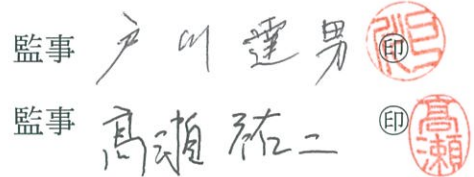 監事 戸川達男 ㊞
監事 髙瀬祐二 ㊞ 髙瀬